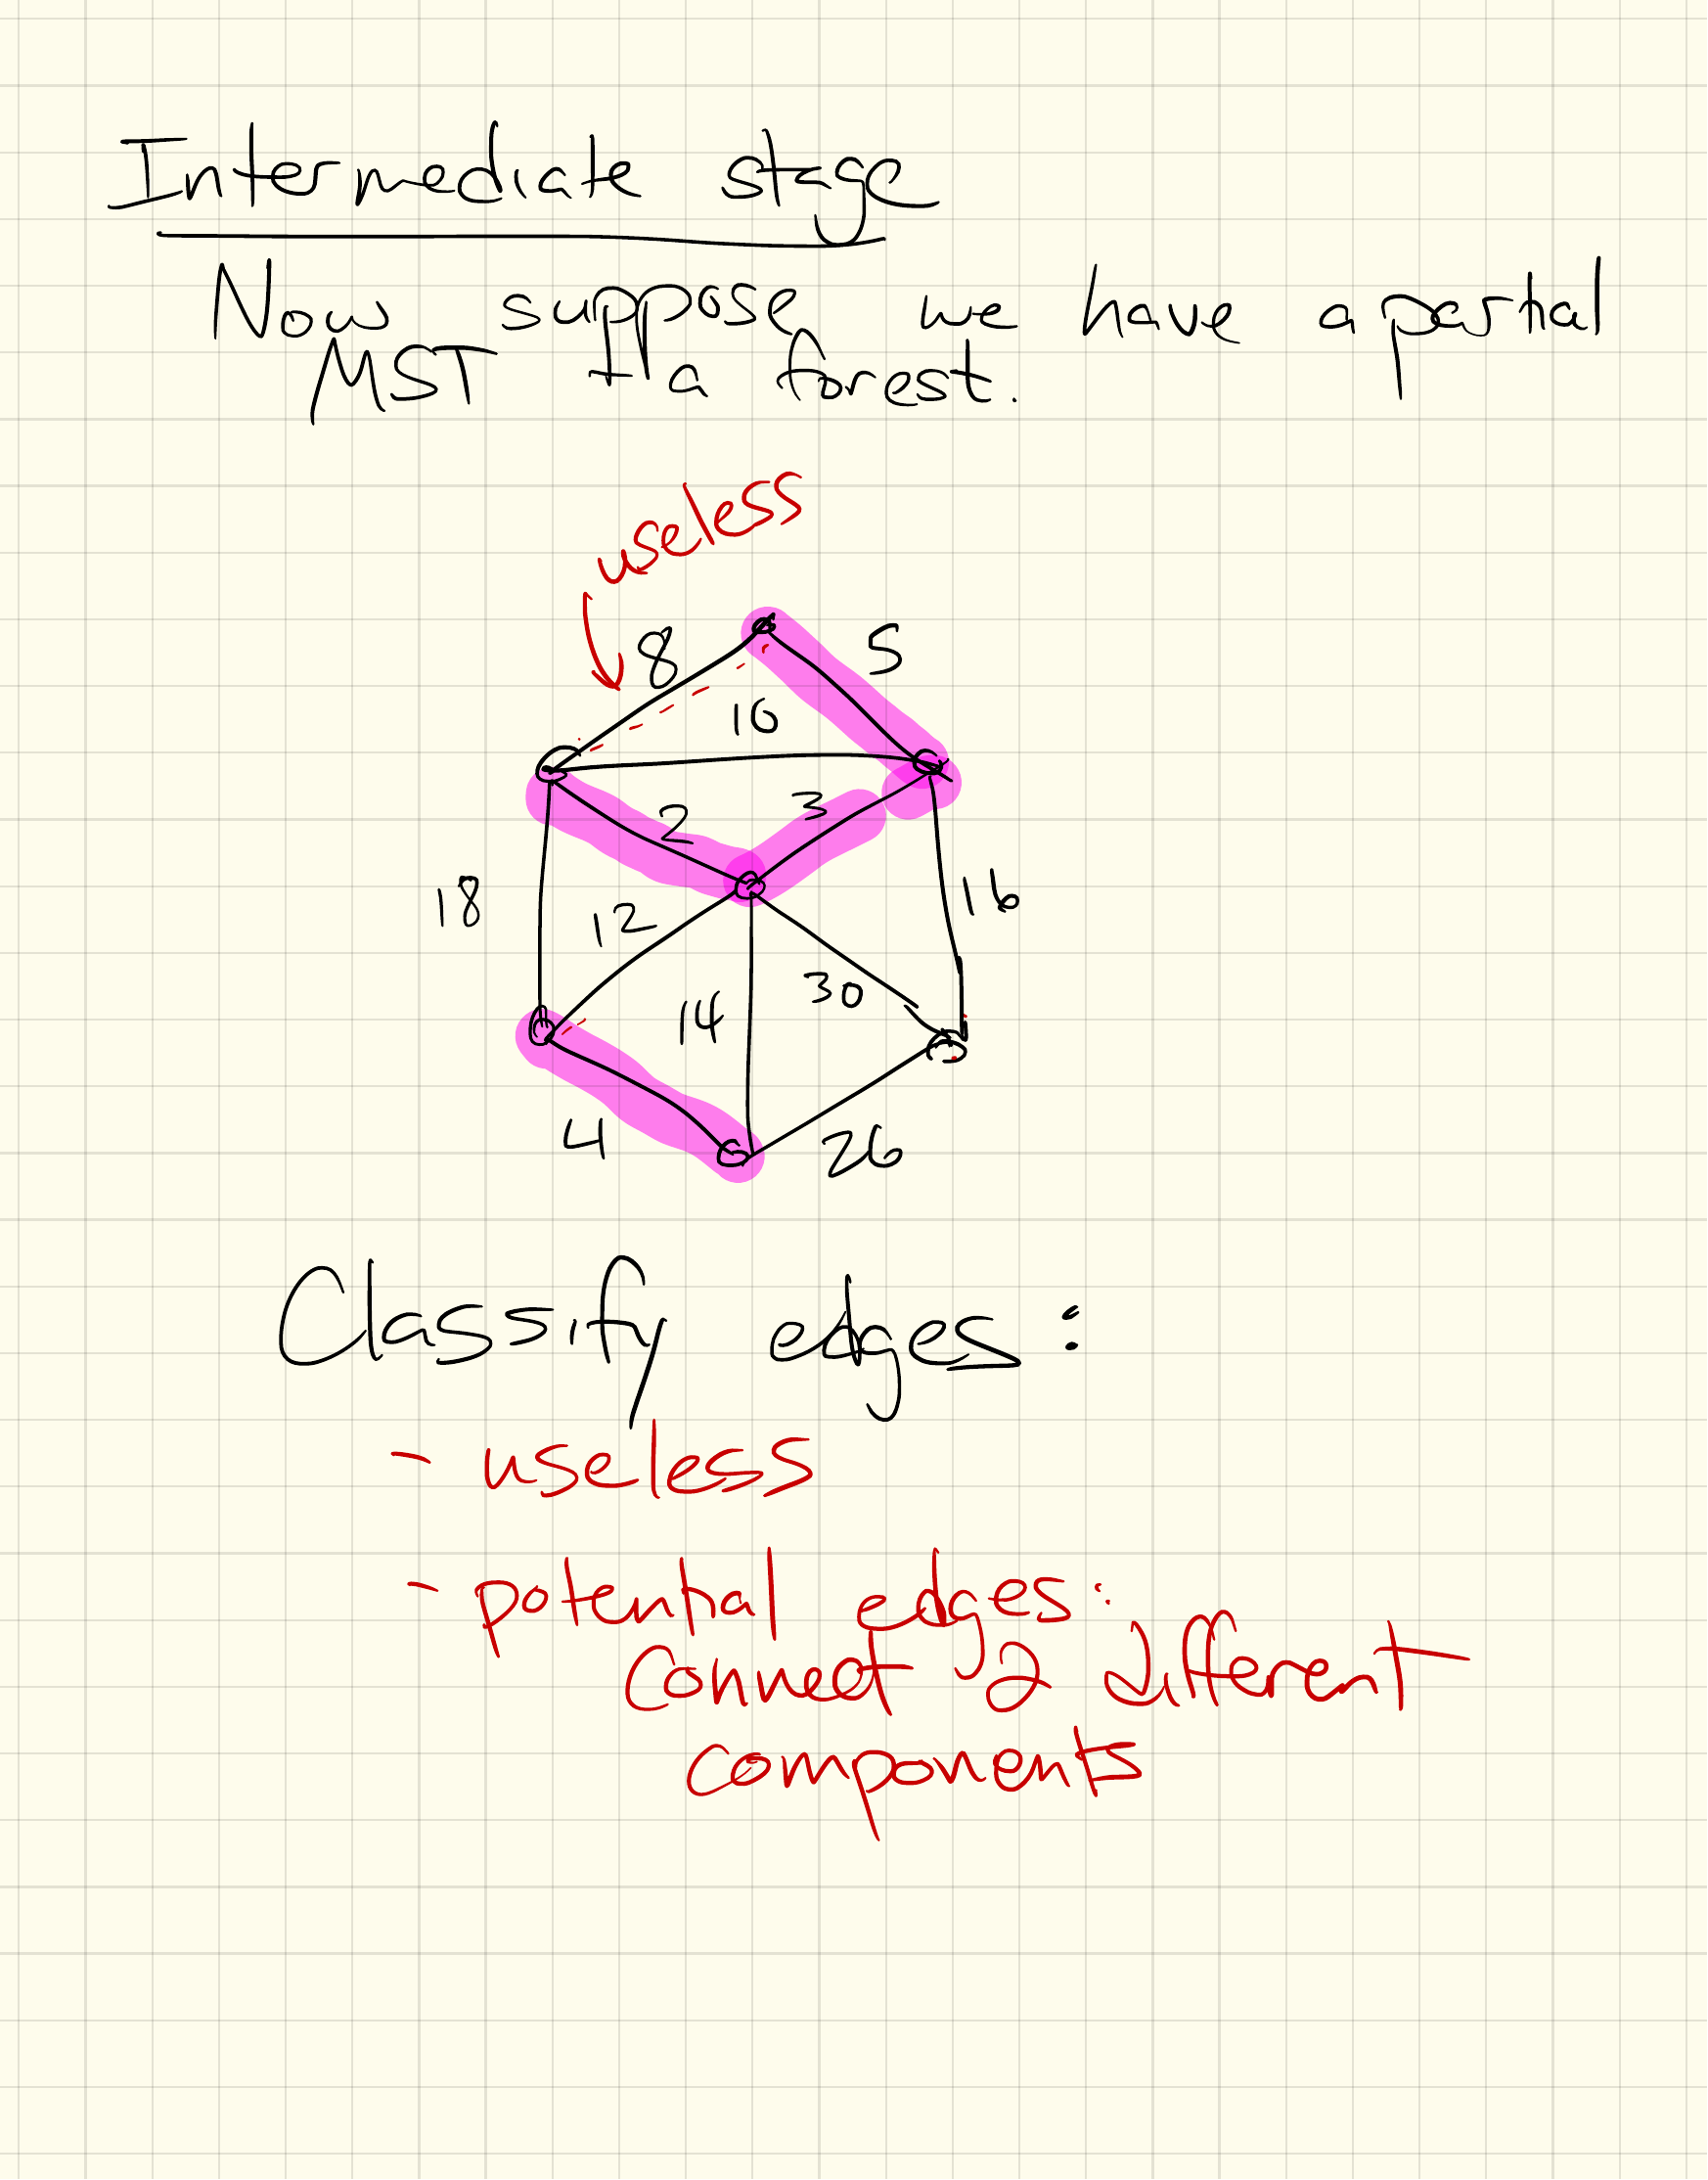 Intermediate stage
Now suppose we have a partial
MST a forest.
useless
8
5
10
2
3
18
12
16
14
30
4
26
Classify edges:
- useless
- potential edges:
connect 2 different
components